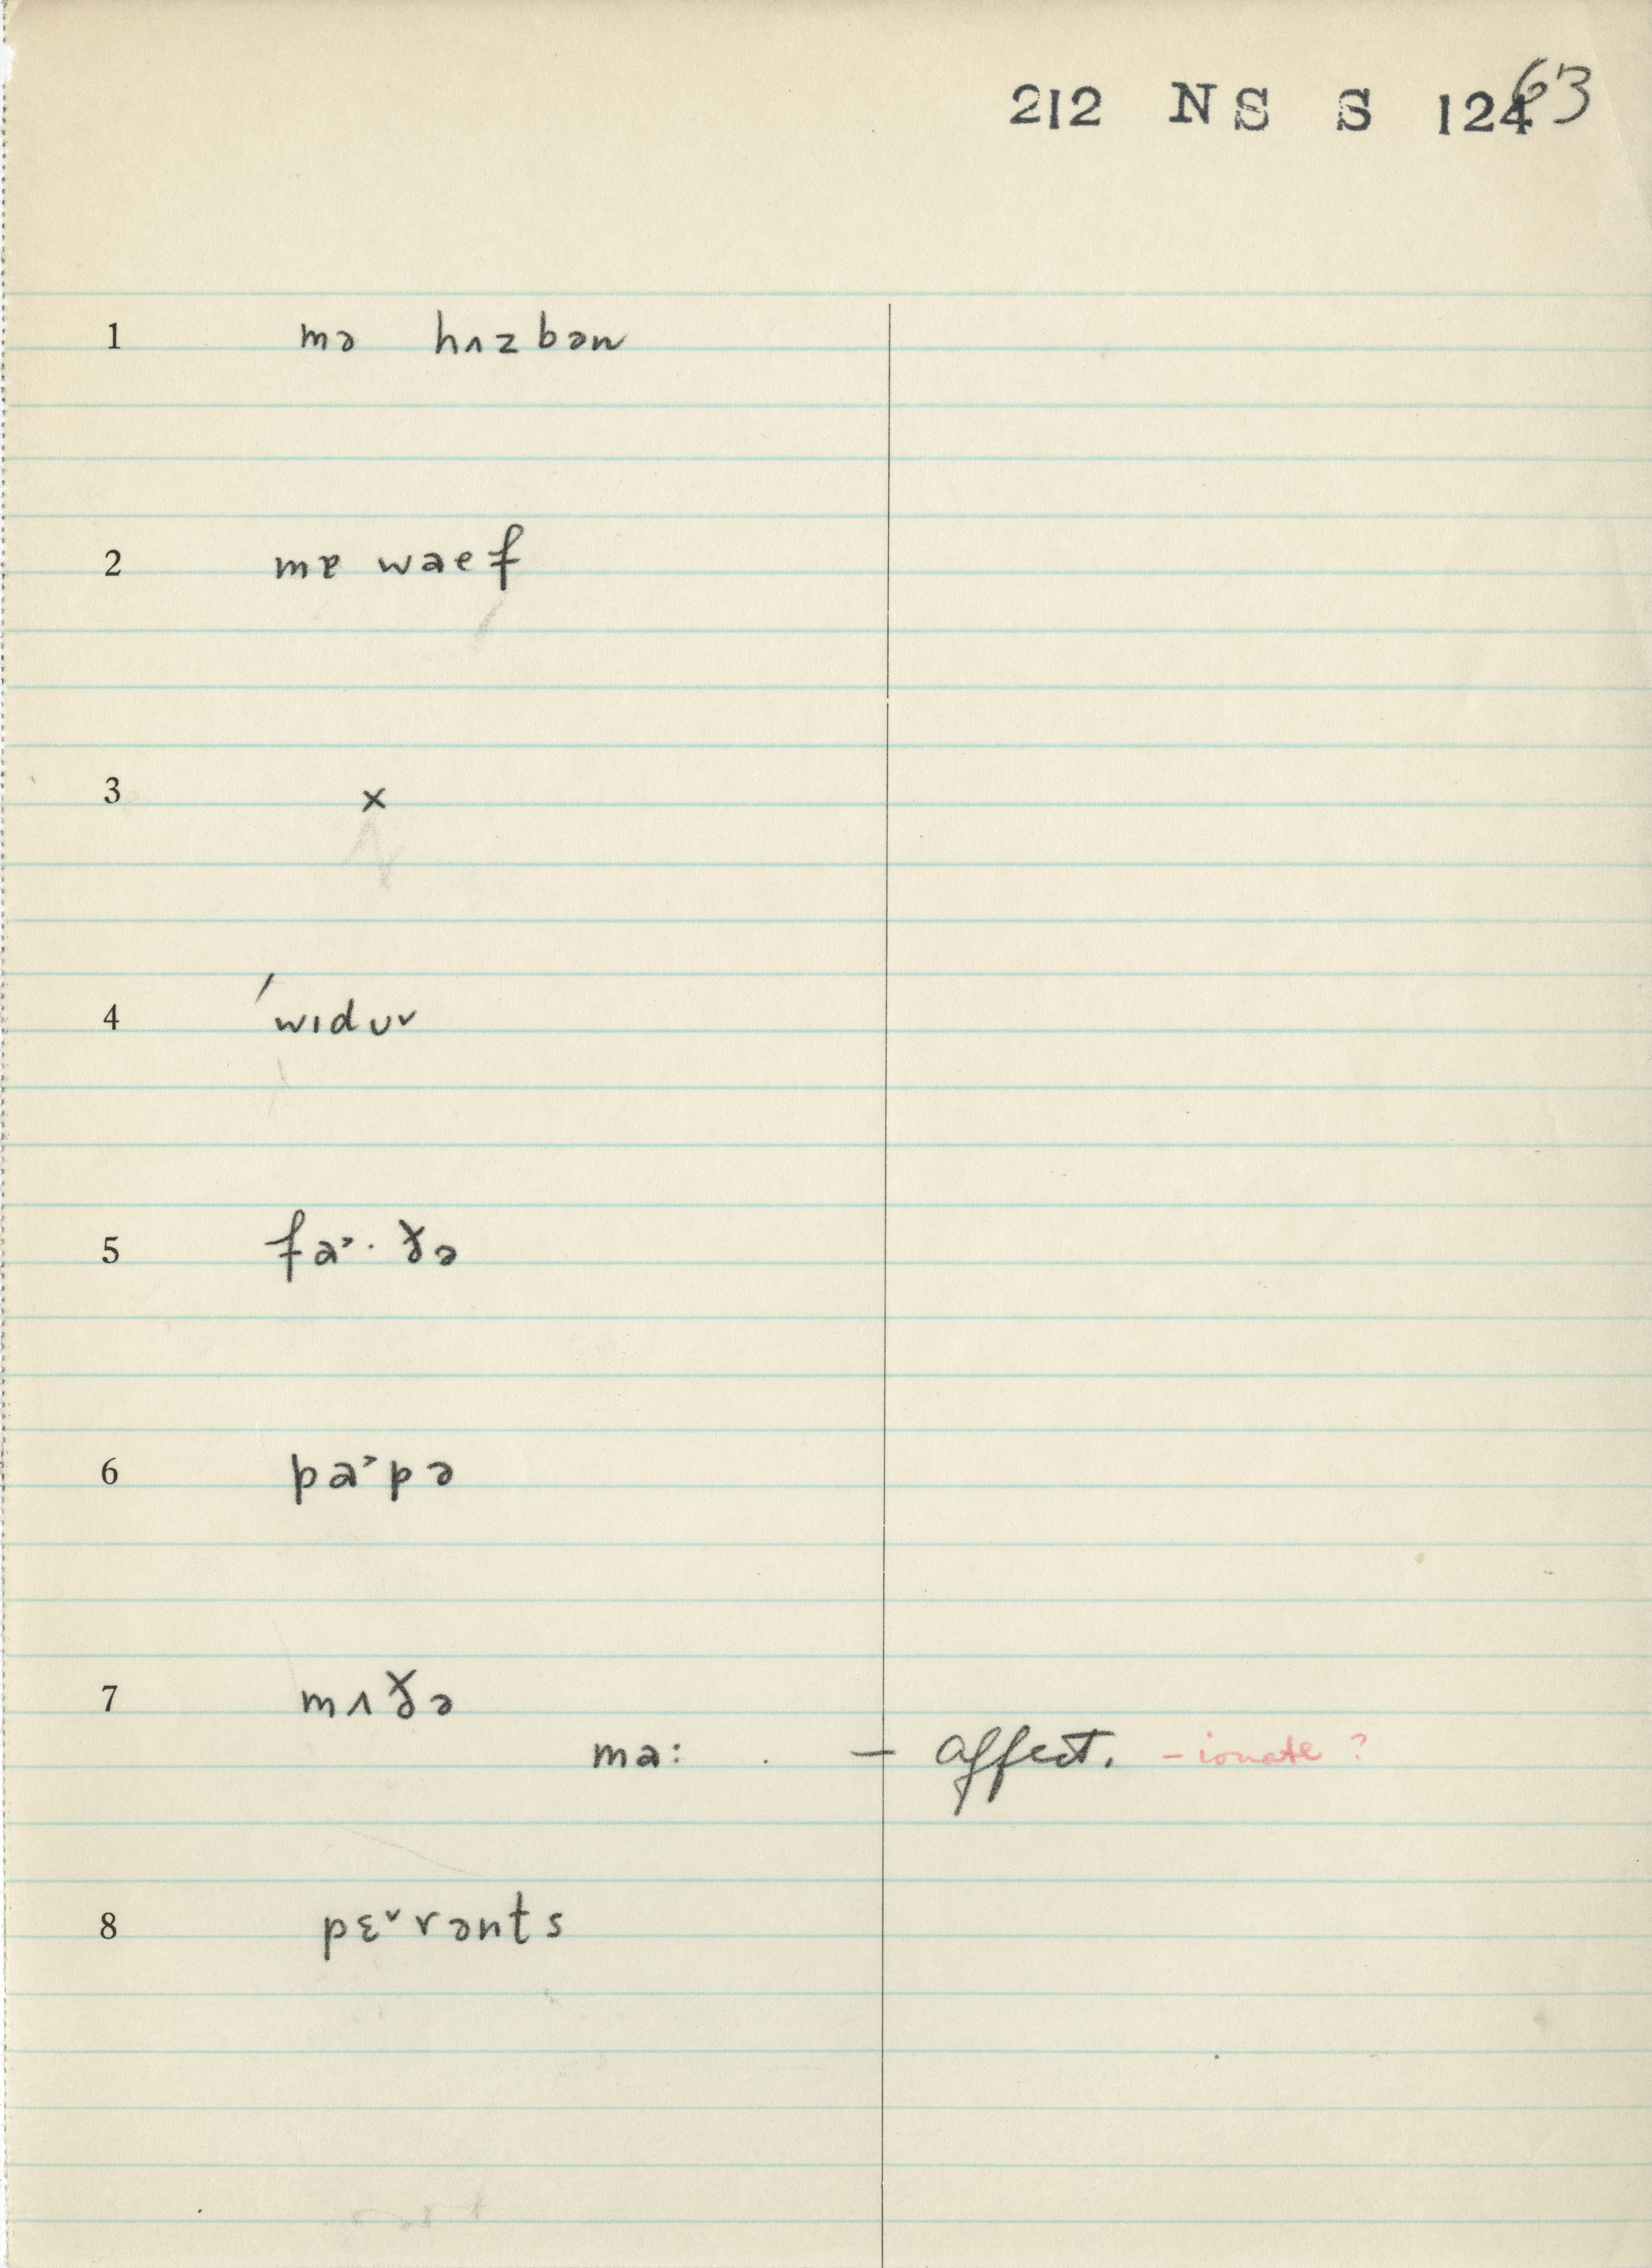 212 NS S 124 63
1 mə hʌzbən
2 mɐ waef
3 x
4 ′wɪdʊv
5 fa˃· ɤə
6 pa˃pə
7 mʌɤə
ma: . — affect. - ionate ?
8 pɛ˅rənts